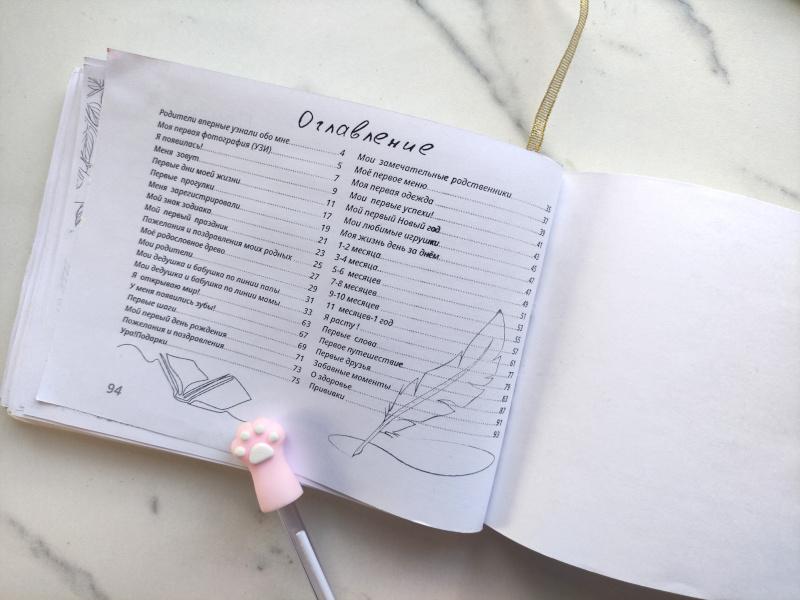 Оглавление
Родители вперные узнали обо мне 4
Моя первая фотография (УЗИ) 5
Я появилась! 7
Меня зовут 9
Первые дни моей жизни 11
Первые прогулки 17
Меня зарегистрировали 19
Мой знак зодиака 21
Мой первый праздник 23
Пожелания и поздравления моих родных 25
Моё родословное древо 27
Мои родители 29
Мои дедушка и бабушка по линии папы 31
Мои дедушка и бабушка по линии мамы 33
Я открываю мир! 63
У меня появились зубы! 67
Первые шаги 69
Мой первый день рождения 71
Пожелания и поздравления 73
Ура!Подарки 75
Мои замечательные родственники 35
Моё первое меню 37
Моя первая одежда 39
Мои первые успехи! 41
Мой первый Новый год 43
Мои любимые игрушки 45
Моя жизнь день за днём 47
1-2 месяца 47
3-4 месяца 49
5-6 месяцев 51
7-8 месяцев 53
9-10 месяцев 55
11 месяцев-1 год 57
Я расту ! 61
Первые слова 77
Первое путешествие 79
Первые друзья 83
Забавные моменты 87
О здоровье 91
Прививки 93
94